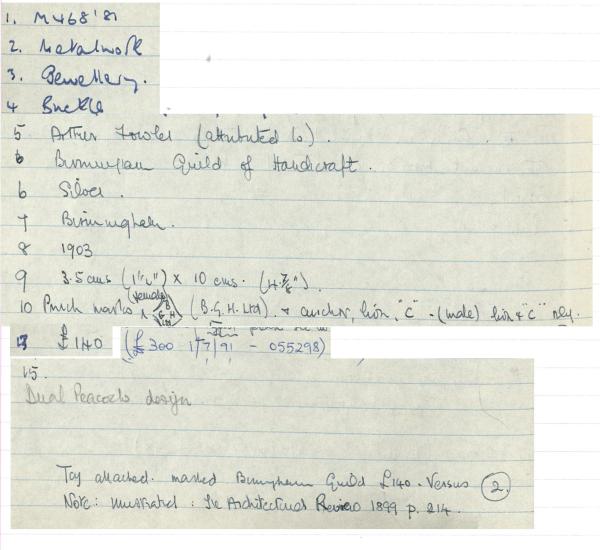 1. M468'81
2. Metalwork
3. Jewellery.
4 Buckle
5 Arthur Fowler (attributed to).
6 Birmingham Guild of Handicraft.
6 Silver.
7 Birmingham.
8 1903
9 3.5 cms (1½") x 10 cms.
10 Punch marks (female) B.G.H. Ltd (B.G.H. Ltd) & anchor, lion, "C" - (male) lion & "C" only.
13 £140 (£300 1/7/91 - 055298)
15.
Dual Peacock design
Tag attached. marked Birmingham Guild £140. Versus 2.
Note: Illustrated: The Architectural Review 1899 p. 214.